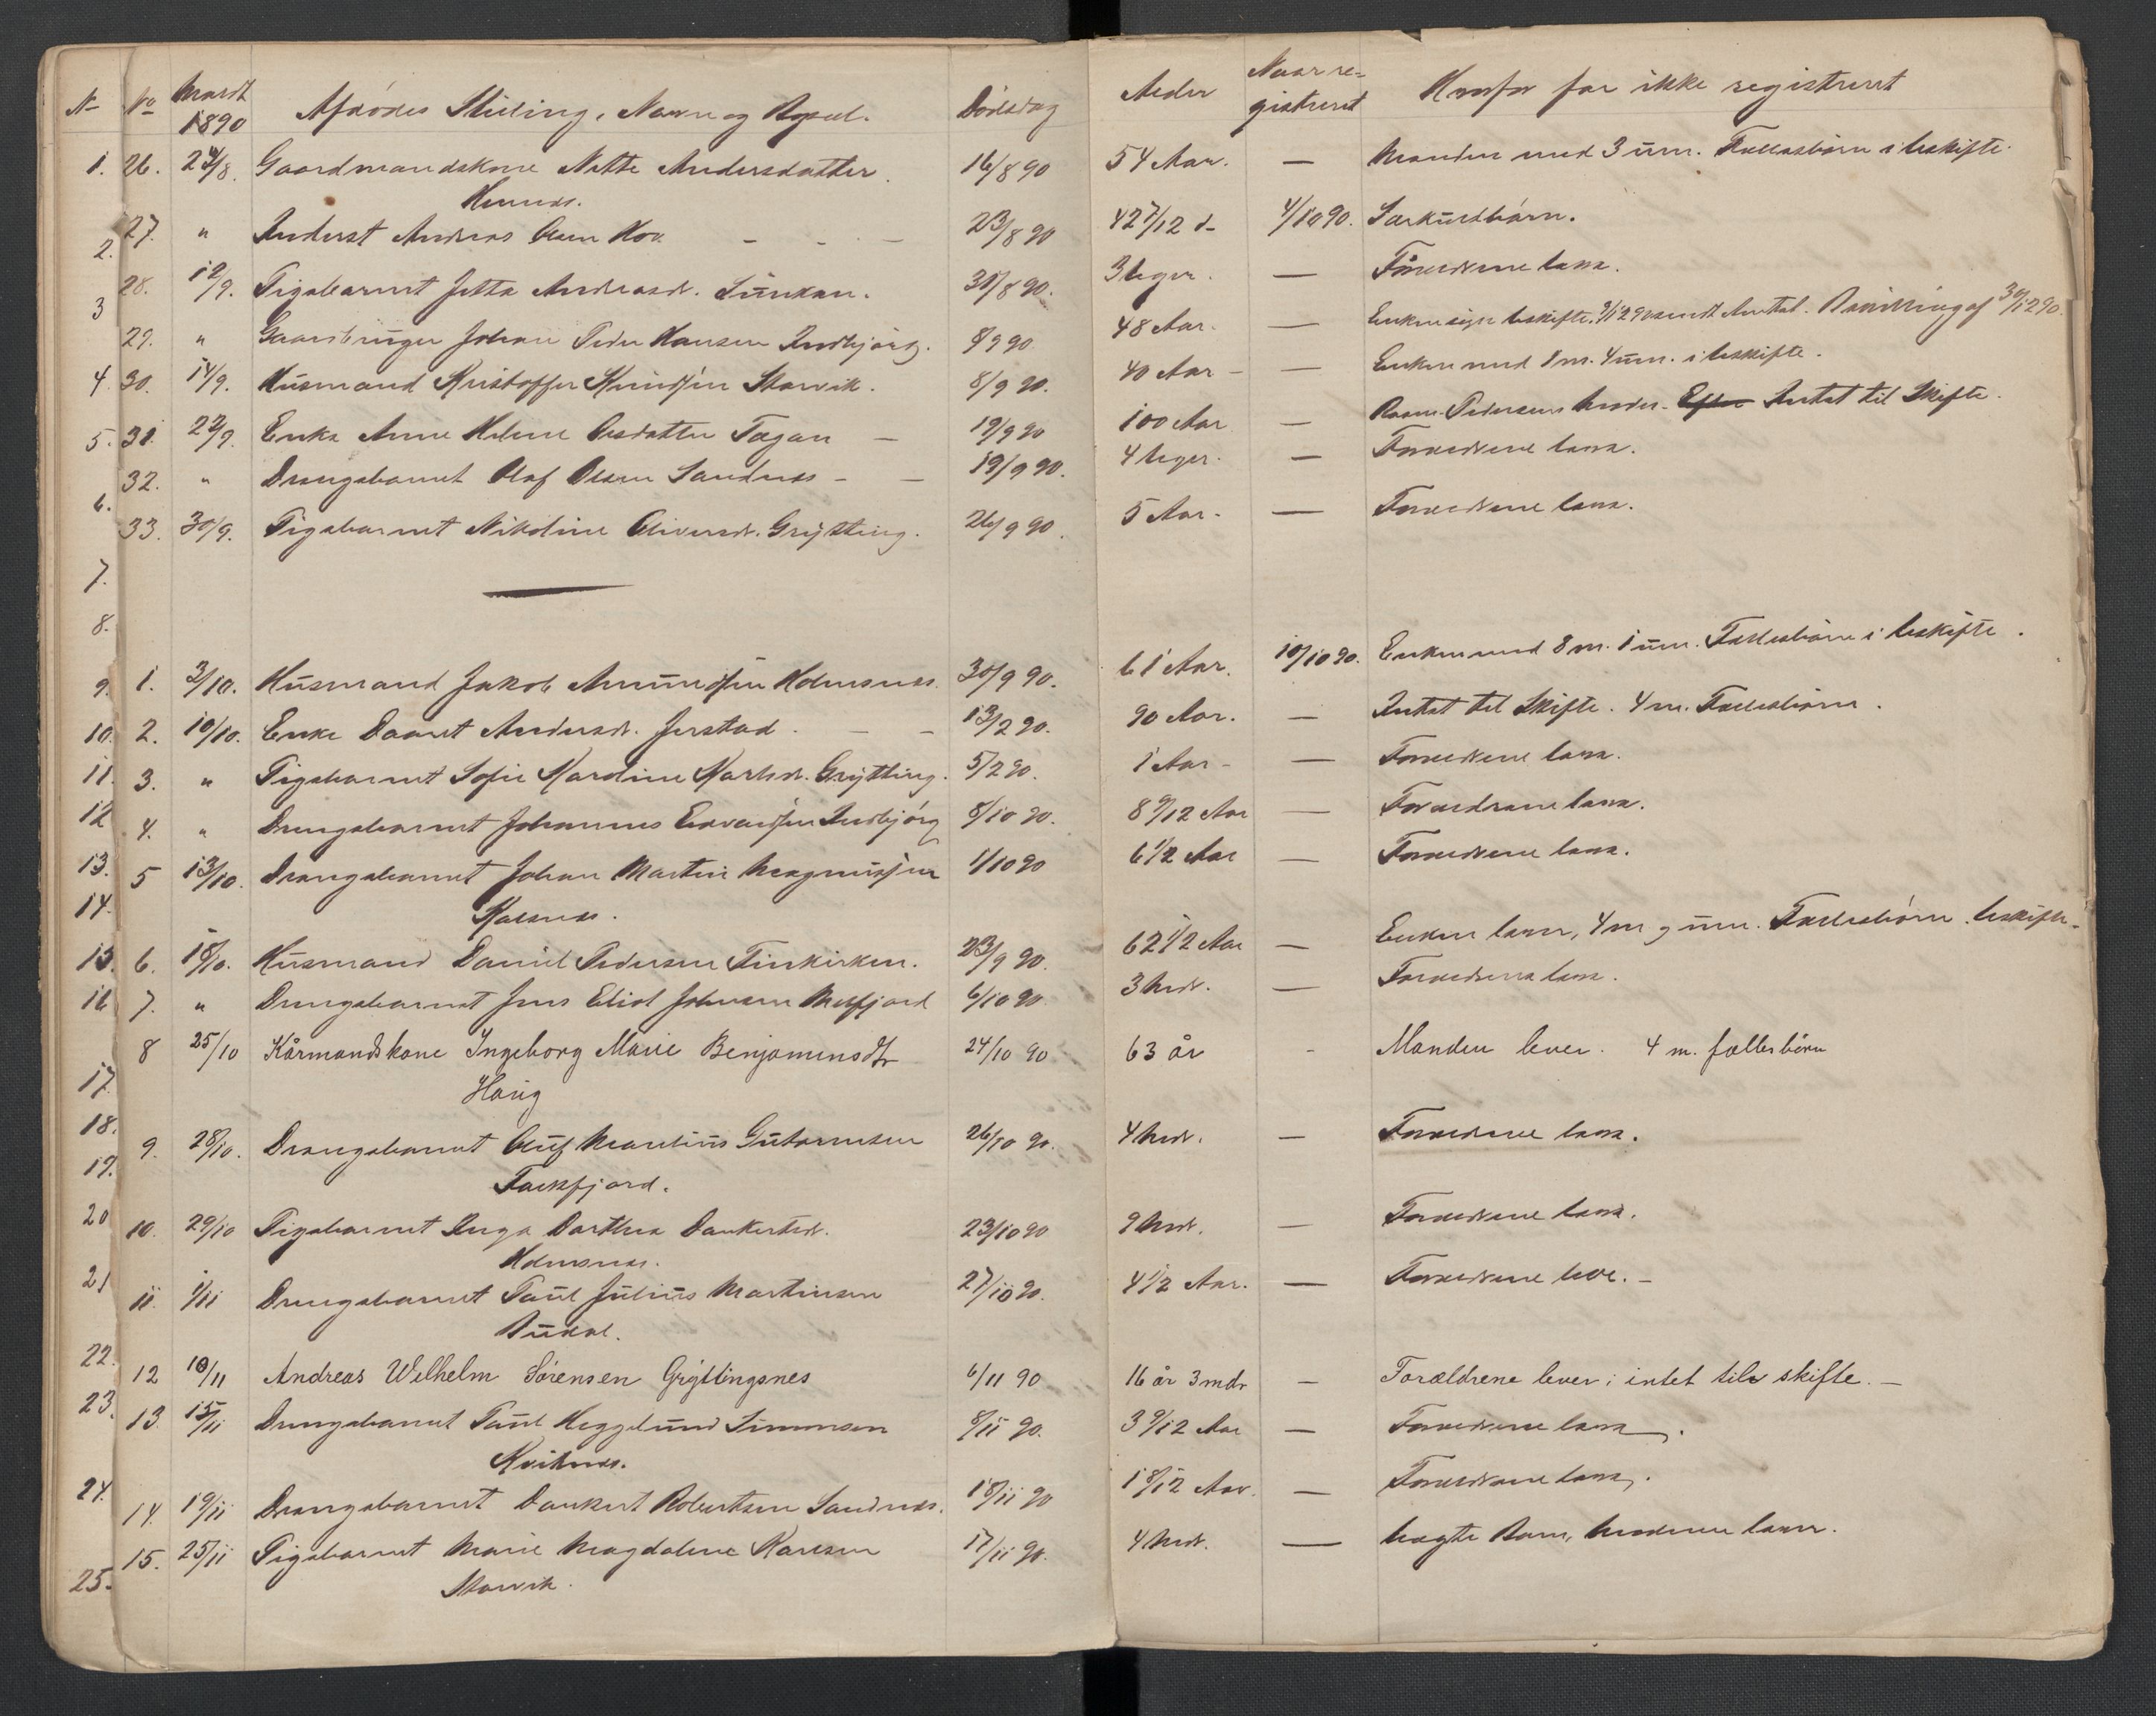 No No Anmeldt 1890 Afdødes Stilling, Navn og Bopæl. Dødsdag Alder Naar registreret Hvorfor ikke registreret
1. 26. 24/8. Gaardmandskone Nette Andersdatter 16/8 90 54 Aar. — Manden med 3 um. Fællesbørn i Uskifte.
27. " Inderst Andreas Olsen Hov. 23/8 90 42 7/12 d— 4/10 90. Særkuldbørn.
2.
28. 12/9. Pigebarnet Jetta Andreasdr. 31/8 90. 3 Uger. — Forældrene leve.
3
29. " Gaardbruger Johan Peder Hansen Indbjørg. 8/9 90 48 Aar. — Enken i Uskifte. 30/12 90.
4. 30. 14/9. Husmand Kristoffer Knudsen Storvik. 8/9 90. 40 Aar — Enken med 1 m. 4 um. i Uskifte.
5. 31. 22/9. Enke Anne Helene Olsdatter — 19/9 90 100 Aar — Pedersens Moder. Intet til Skifte.
32. " Drengebarnet Olaf Olsen Sandnes — — 19/9 90. 4 Uger. — Forældrene leve.
6.
33. 30/9. Pigebarnet Nikoline Oliversdr. Grÿtting. 26/9 90. 5 Aar. — Forældrene leve.
7.
8.
9. 1. 3/10. Husmand Jakob Amundsen Holmenes. 30/9 90. 61 Aar. 10/10 90. Enken med 8 m. 1 um. Fællesbørn i Uskifte.
10. 2. 10/10. Enke Daaret Andersdr. Jerstad. — — 13/2 90. 90 Aar. — Intet til Skifte. 4 m. Fællesbørn.
11. 3. " Pigebarnet Sofie Karoline Karlsdr. Grÿtting. 5/2 90. 1 Aar — — Forældrene leve.
12 4. " Drengebarnet Johannes Edvardsen Indbjørg 8/10 90. 8 9/12 Aar — Forældrene leve.
13. 5 13/10. Drengebarnet Johan Martin Magnussen 1/10 90 6 1/2 Aar — Forældrene leve.
14. Kalsnes.
15. 6. 18/10. Husmand Daniel Pedersen Finkirken. 23/9 90. 62 1/2 Aar — Enken lever, 4 m. um. Fællesbørn. Uskifte.
16 7. " Drengebarnet Jens Eliot Johnsen Mefjord 6/10 90 3 Mdr. — Forældrene leve.
8 25/10 Kårmandskone Ingeborg Marie Benjaminsdtr 24/10 90 63 år - Manden lever. 4 m. fællesbörn
17. Haug
18. 9. 28/10. Drengebarnet Oluf Martinus Guttormsen 26/10 90. 4 Mdr. — Forældrene leve.
19. Torskfjord.
20 10. 29/10 Pigebarnet Inga Dorthea Dankertsdr. 23/10 90 9 Mdr. — Forældrene leve.
Holmenes.
21 11. 1/11 Drengebarnet Paul Julius Martinsen 27/10 90. 4 1/2 Aar. — Forældrene leve. —
Bukkel.
22. 12 10/11 Andreas Wilhelm Sörensen Grÿttingsnes 6/11 90 16 år 3 mdr — Forældrene lever; intet til skifte. —
23. 13. 15/11 Drengebarnet Paul Heggelund Simonsen 8/11 90. 3 9/12 Aar — Forældrene leve.
Kviknes.
24. 14. 19/11 Drengebarnet Dankert Robertsen Sandnes. 18/11 90 1 8/12 Aar. — Forældrene leve.
15. 25/11 Pigebarnet Marie Magdalene Karlsen 17/11 90. 4 Mdr. — Uægte Barn, Moderen lever.
25. Storvik.